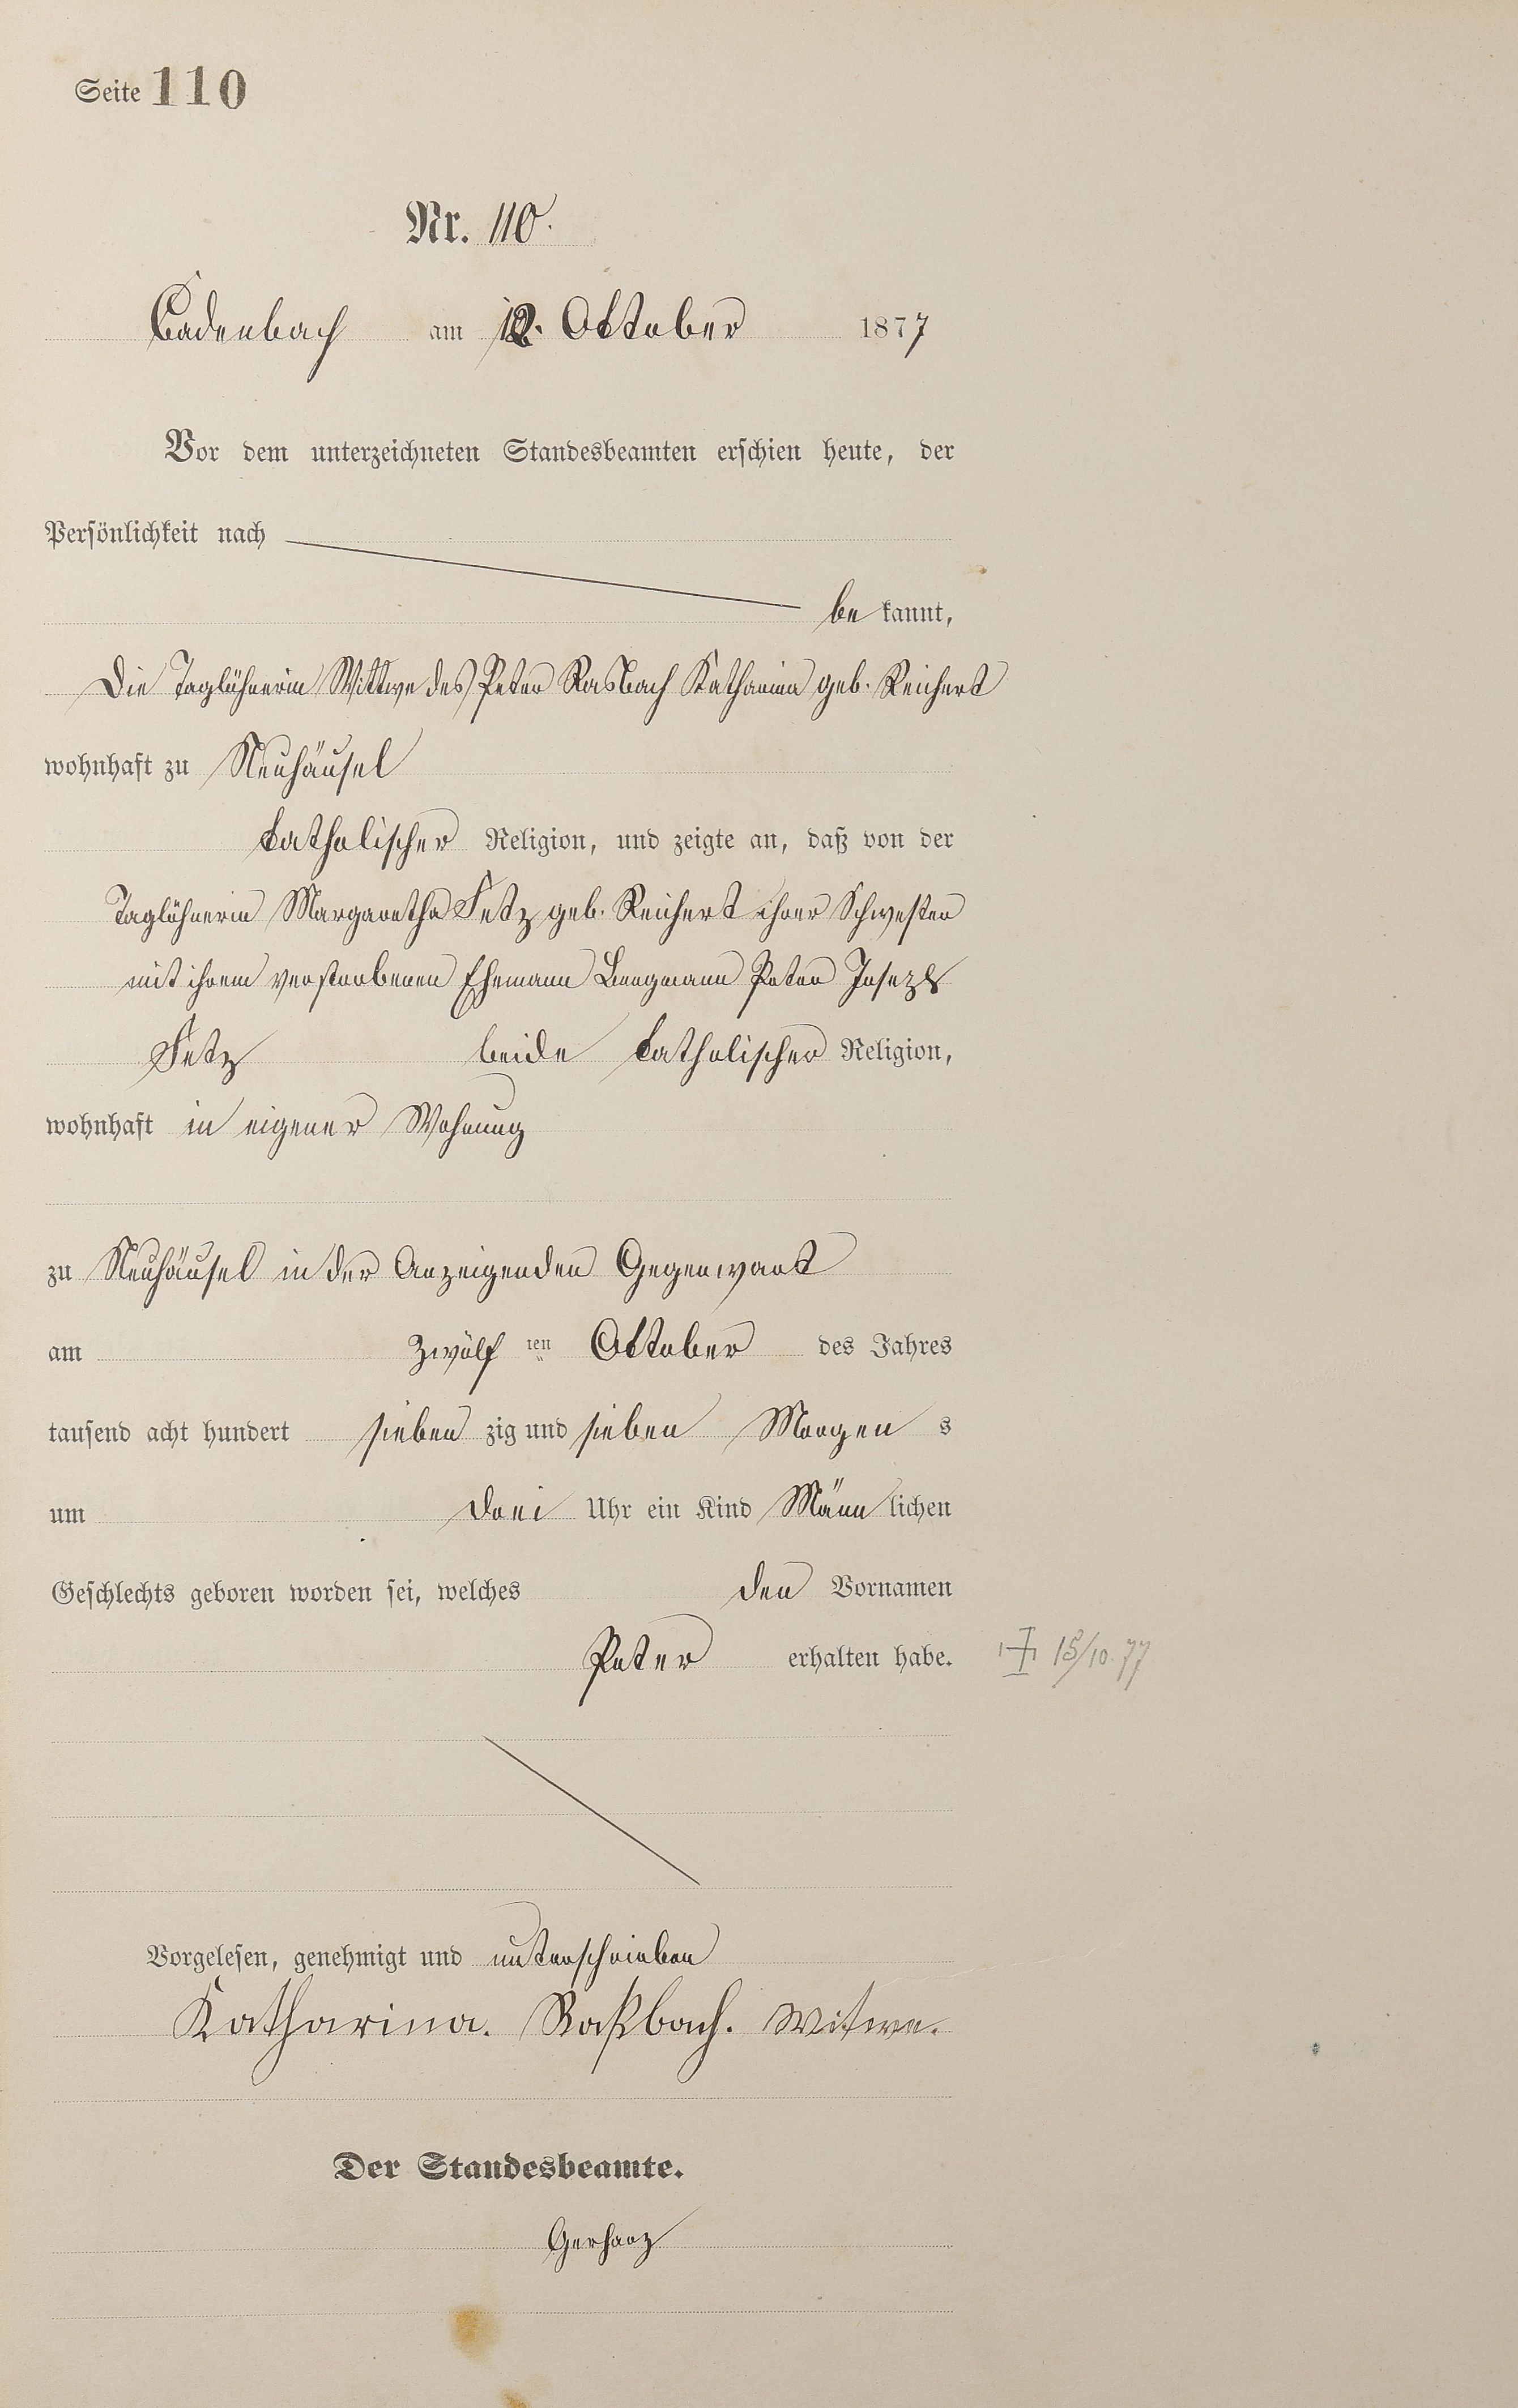 Seite 110
Nr. 110.
Cadenbach am 12. Oktober 1877
Vor dem unterzeichneten Standesbeamten erschien heute, der
Persönlichkeit nach
be kannt,
Die Taglöhnerin Wittwe des Peter Rasbach Katharina geb. Reichert
wohnhaft zu Neuhäusel
katholischer Religion, und zeigte an, daß von der
Taglöhnerin Margaretha Fetz geb. Reichert ihrer Schwester
mit ihrem verstorbenen Ehemann Bergmann Peter Joseph
Fetz beide katholischer Religion,
wohnhaft in eigener Wohnung
zu Neuhäusel in der Anzeigenden Gegenwart
am Zwölf ten Oktober des Jahres
tausend acht hundert sieben zig und sieben Morgen s
um drei Uhr ein Kind Männ lichen
Geschlechts geboren worden sei, welches den Vornamen
Peter erhalten habe. 15/10.77
Vorgelesen, genehmigt und unterschrieben
Katharina. Raßbach. Witwe.
Der Standesbeamte.
Gerharz